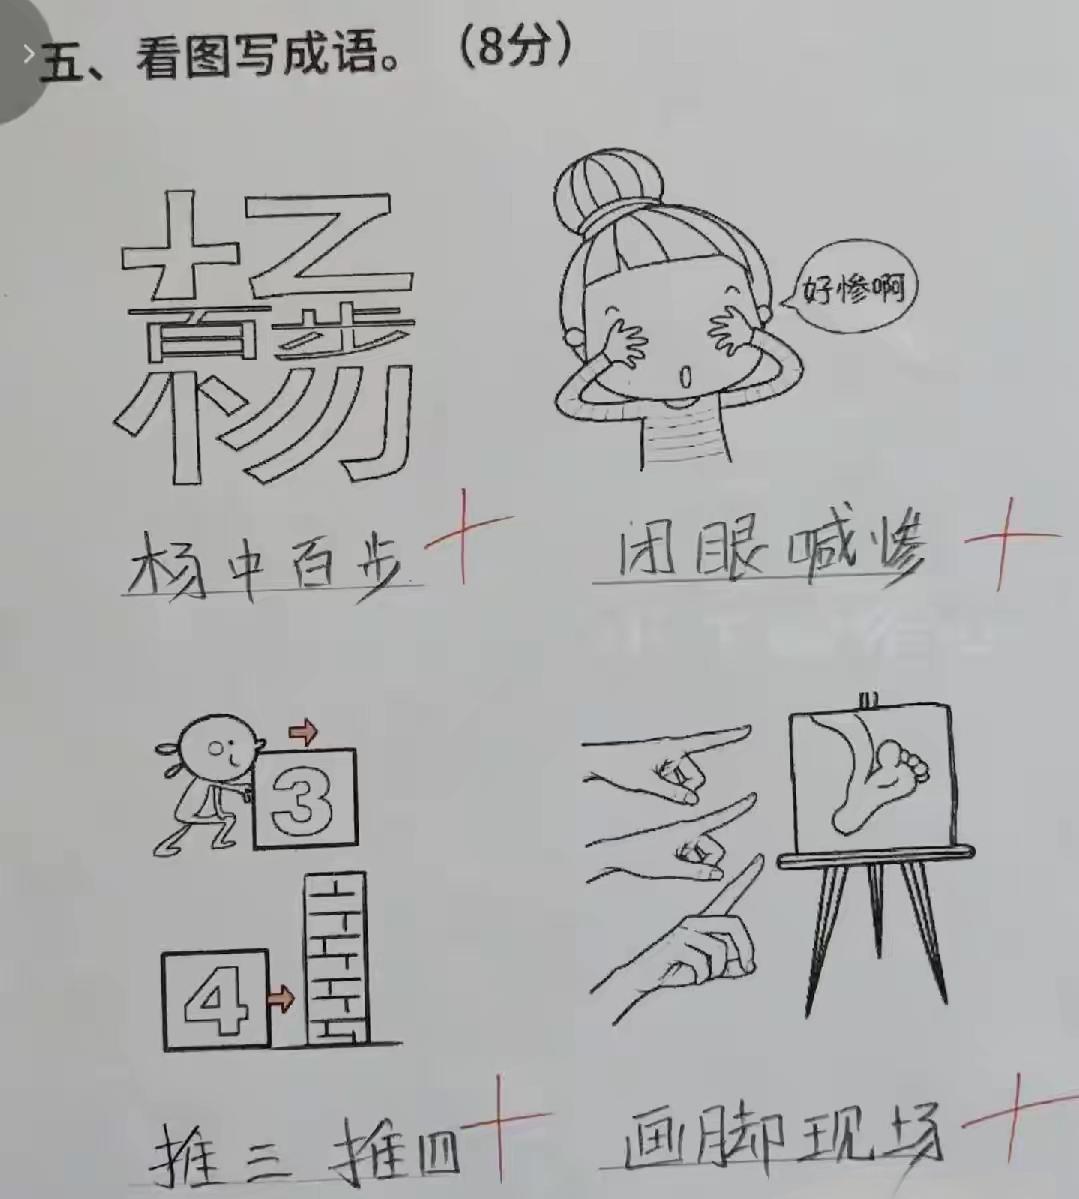 五、看图写成语。（8分）
百步
好惨啊
杨中百步
闭眼喊惨
3
4
推三推四
画脚现场